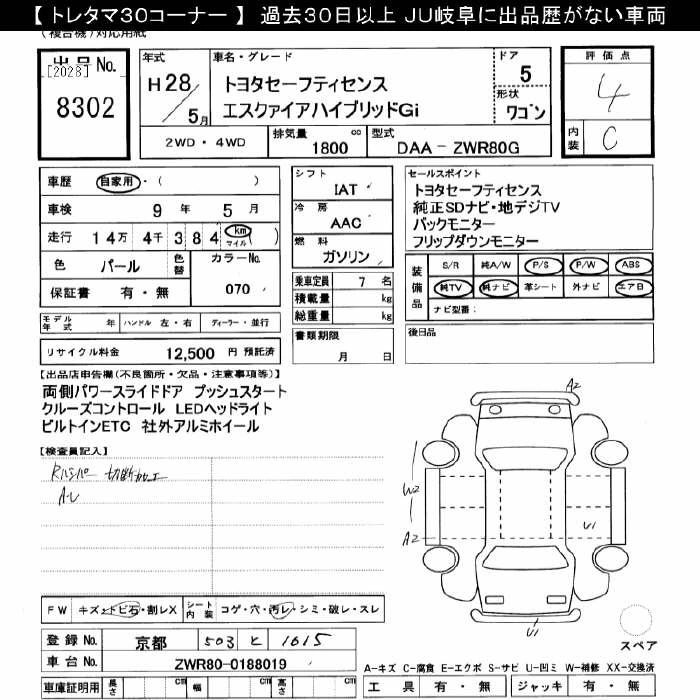 【 トレタマ30コーナー 】 過去30日以上 JU岐阜に出品歴がない車両
(複合機)対応用紙
出品 No.
[2028]
8302
年式
H28/5月
車名・グレード
トヨタセーフティセンス
エスクァイアハイブリッドGi
ドア
5
形状
ワゴン
2WD ・ 4WD
排気量 1800 cc
型式 DAA- ZWR80G
評価点
4
内装 C
車歴 自家用・( )
車検 9 年 5 月
走行 14万 4千 3 8 4 km マイル ( )
色 パール 色替 カラーNo.
保証書 有・無 070
シフト
IAT
冷房
AAC
燃料
ガソリン
乗車定員 7 名
積載量 kg
総重量 kg
書類期限
月 日
セールスポイント
トヨタセーフティセンス
純正SDナビ・地デジTV
バックモニター
フリップダウンモニター
装備品
S/R 純A/W P/S P/W ABS
純TV 純ナビ 革シート 外ナビ エアB
ナビ型番:
後日品
モデル年式 年 ハンドル 左・右 ディーラー・並行
リサイクル料金 12,500 円 預託済
【出品店申告欄(不良箇所・欠品・注意事項等)】
両側パワースライドドア プッシュスタート
クルーズコントロール LEDヘッドライト
ビルトインETC 社外アルミホイール
【検査員記入】
切断加工
A2
W2
A2
U1
U1
FW キズ・トビ石・割レX シート内装 コゲ・穴・汚レ・シミ・破レ・スレ
登録 No. 京都 503 と 1615
車台 No. ZWR80-0188019
スペア
A-キズ C-腐食 E-エクボ S-サビ U-凹ミ W-補修 XX-交換済
車庫証明用 長さ cm 幅 cm 高さ cm
工具 有・無 ジャッキ 有・無